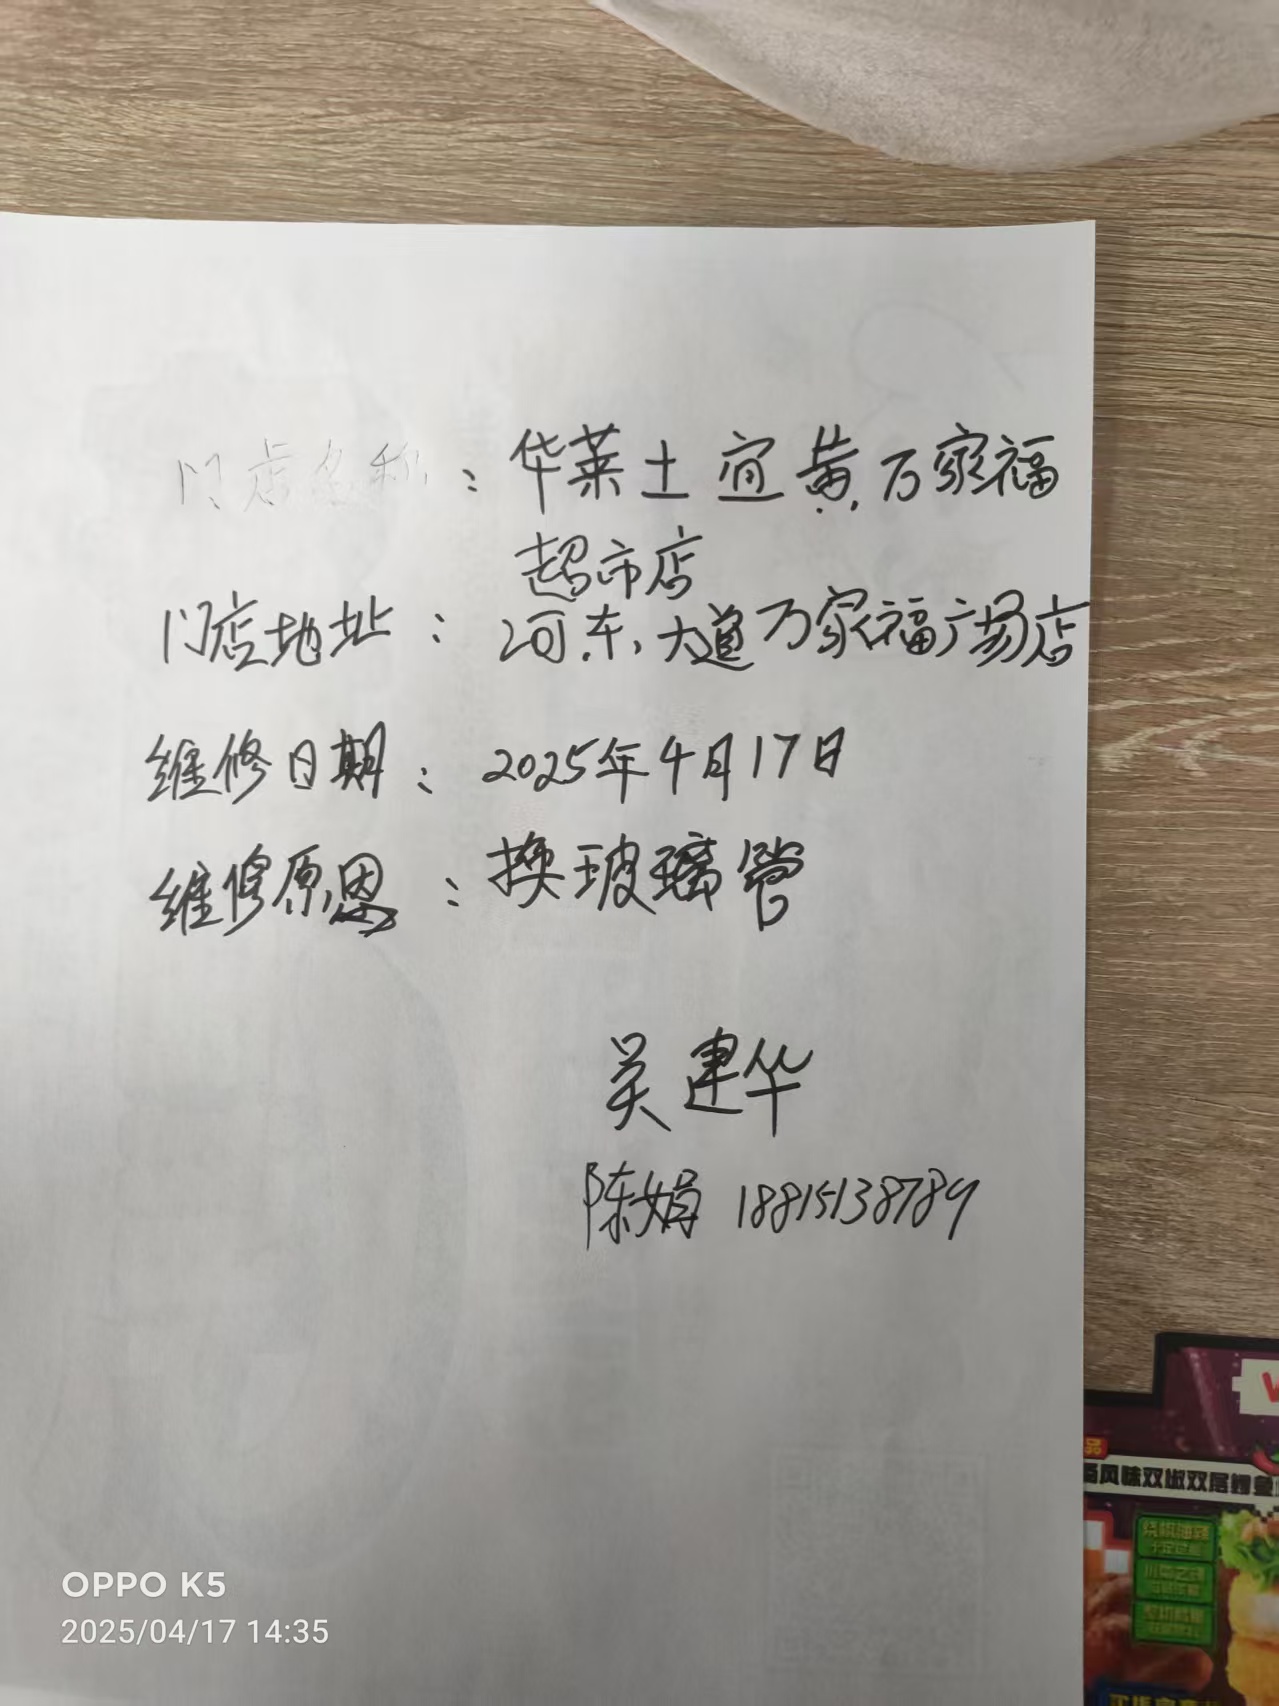 门店名称：华莱士宜黄万家福
超市店
门店地址：河东大道万家福广场店
维修日期：2025年4月17日
维修原因：换玻璃管
吴建华
陈娟 18815138789
OPPO K5
2025/04/17 14:35
风味双椒双层鳕鱼